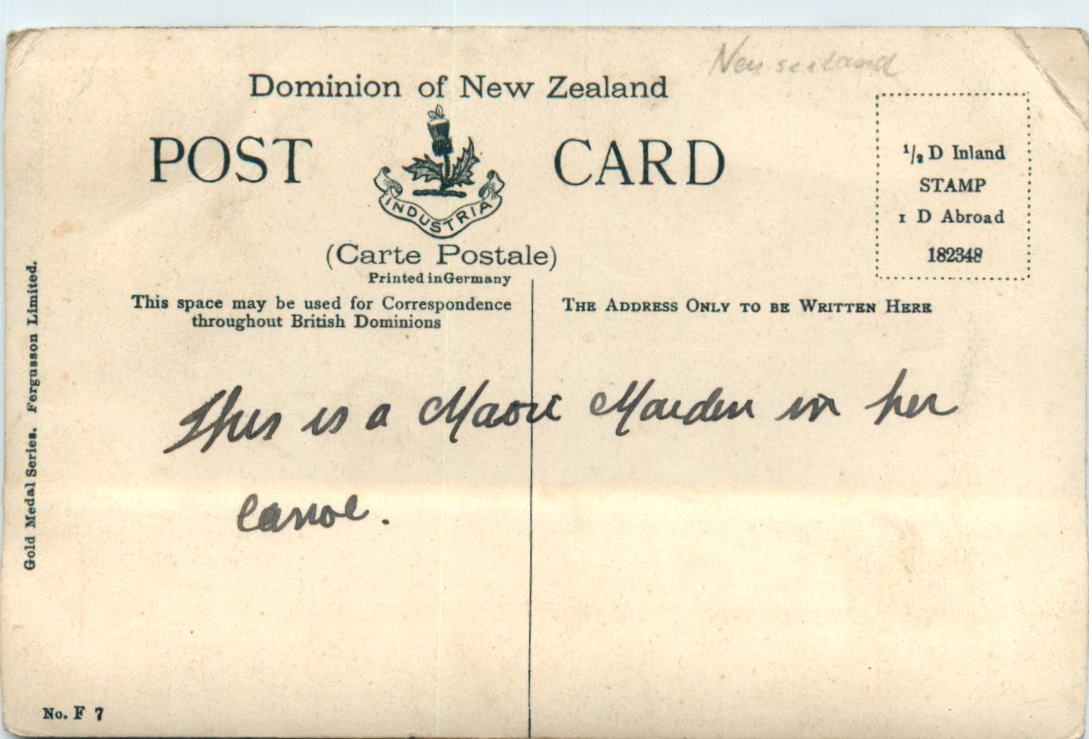 Neuseeland
Dominion of New Zealand
POST CARD
INDUSTRIA
(Carte Postale)
Printed inGermany
½ D Inland
STAMP
1 D Abroad
182348
This space may be used for Correspondence
throughout British Dominions
THE ADDRESS ONLY TO BE WRITTEN HERE
This is a Maori Maiden in her
canoe.
Gold Medal Series. Fergusson Limited.
No. F 7